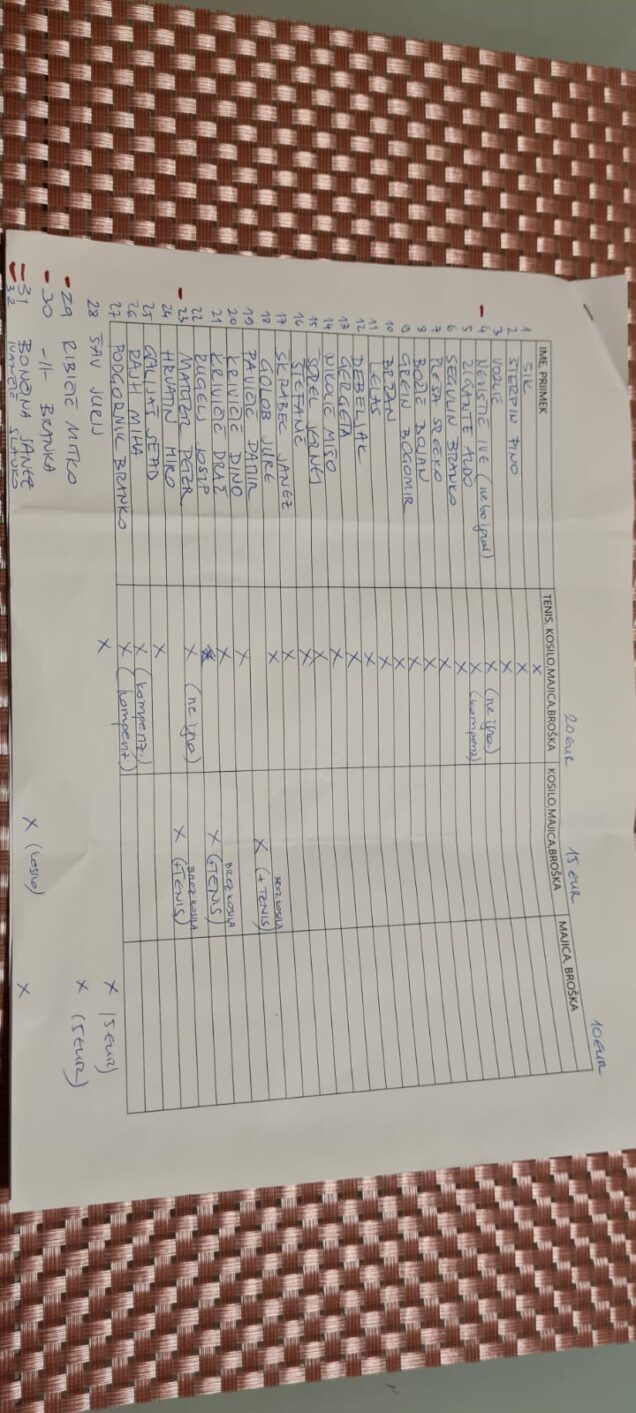 20 EUR 15 EUR 10 EUR
IME, PRIIMEK TENIS, KOSILO,MAJICA,BROŠKA KOSILO,MAJICA,BROŠKA MAJICA, BROŠKA
1 ŠIK X
2 STERPIN PINO X
3 X
4 NEVISTIĆ IVE (ne bo igral) X (ne igra)
5 ZIGANTE ALDO X (kompenz)
6 SEGULIN BRANKO X
7 PLESA SREČKO X
8 BOŽIČ BOJAN X
9 GREIN BOGOMIR X
10 BEŽAN X
11 LEIAS X
12 DEBELJAK X
13 GERGETA X
14 NIKOLIĆ MIŠO X
15 X
16 ŠTEFANČ X
17 ŠKRABEC JANEZ X
18 GOLOB JURE X (+ TENIS) BREZ KOSILA
19 PAVIČIĆ DAMIR X
20 KRIVIČIĆ DINO X
21 KRIVIČIĆ DRAŽ X (+TENIS) BREZ KOSILA
22 ŽUGELJ JOSIP X (ne igra)
23 MATTER PETER X (+TENIS) BREZ KOSILA
24 HRVATIN MIRO
25 GALIJAŠ SEAD X
26 RAJH MIHA X (kompenz.)
27 PODGORNIK BRANKO X (kompenz)
28 ŠAV JURIJ X X (5 EUR)
29 RIBIČIČ MITKO X (5 EUR)
30 -11- BRANKA
31 BONČINA JANEZ X (kosilo) X
32 IVANČIČ SLAVKO